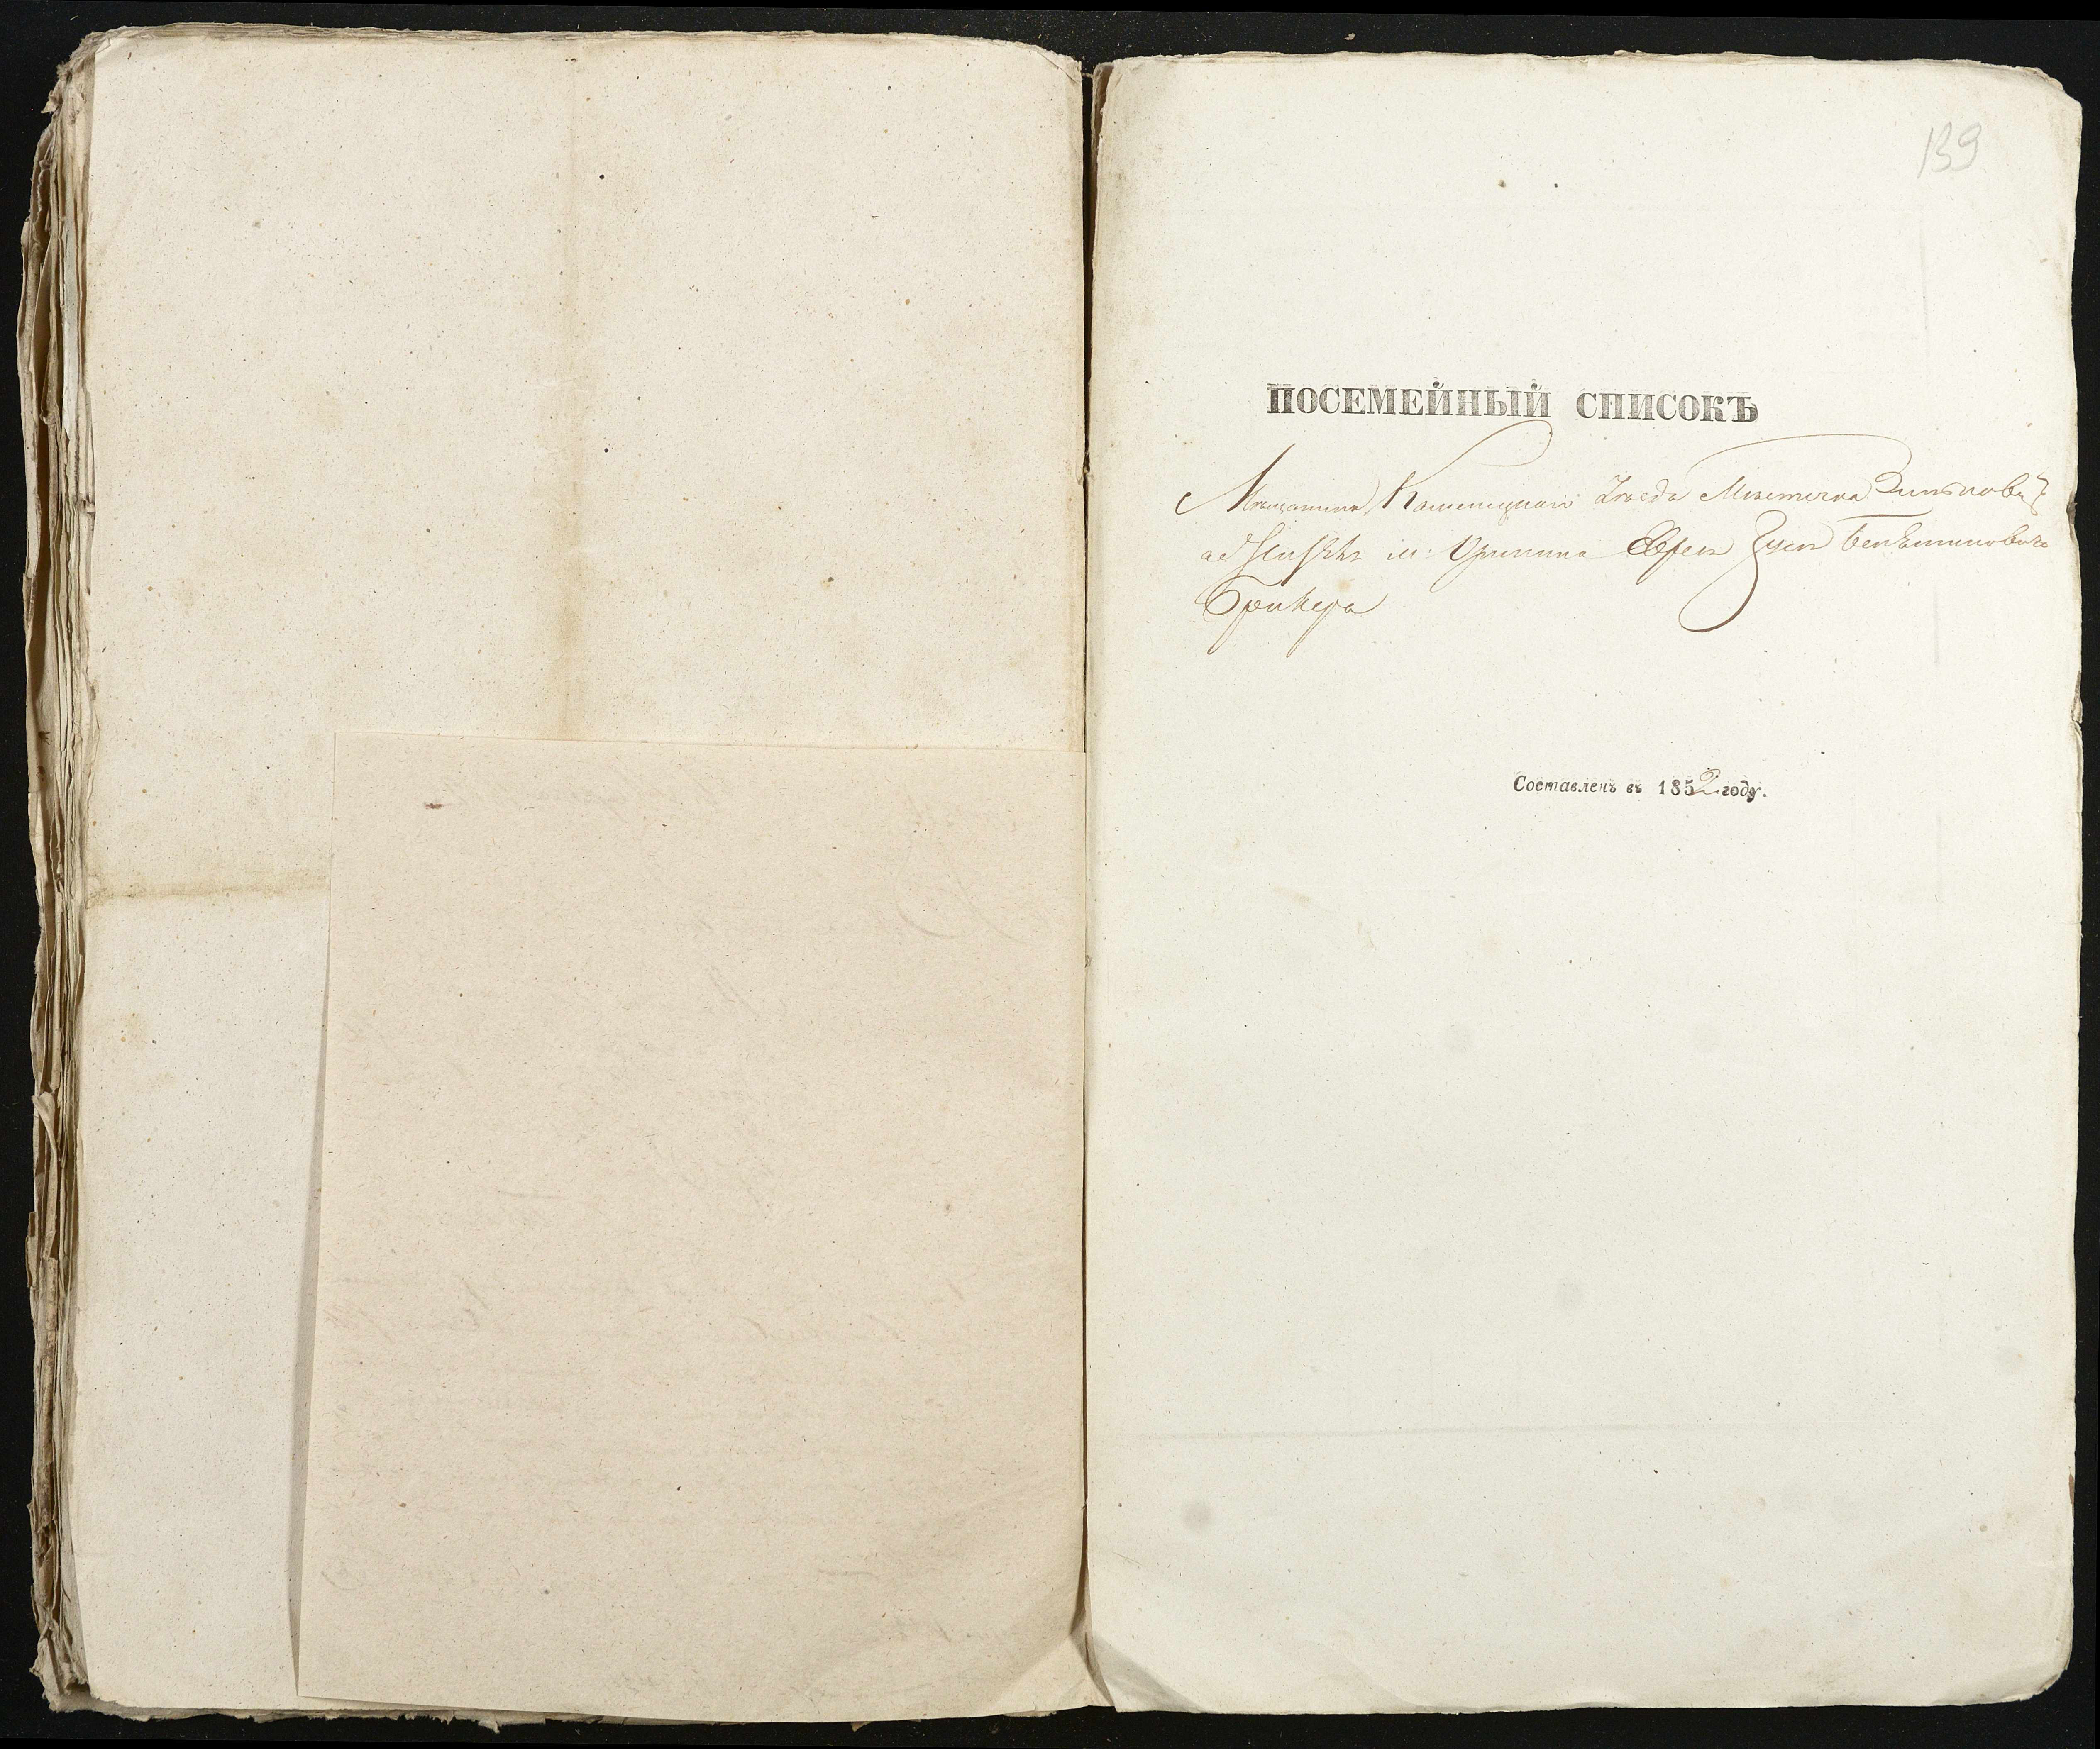 139
ПОСЕМЕЙНЫЙ СПИСОКЪ
Мѣщанина Каменецкаго Уѣзда Мѣстечка
м: Оринина Еврея Зуся Беніаминовича
Брикера
Составленъ въ 1852 году.